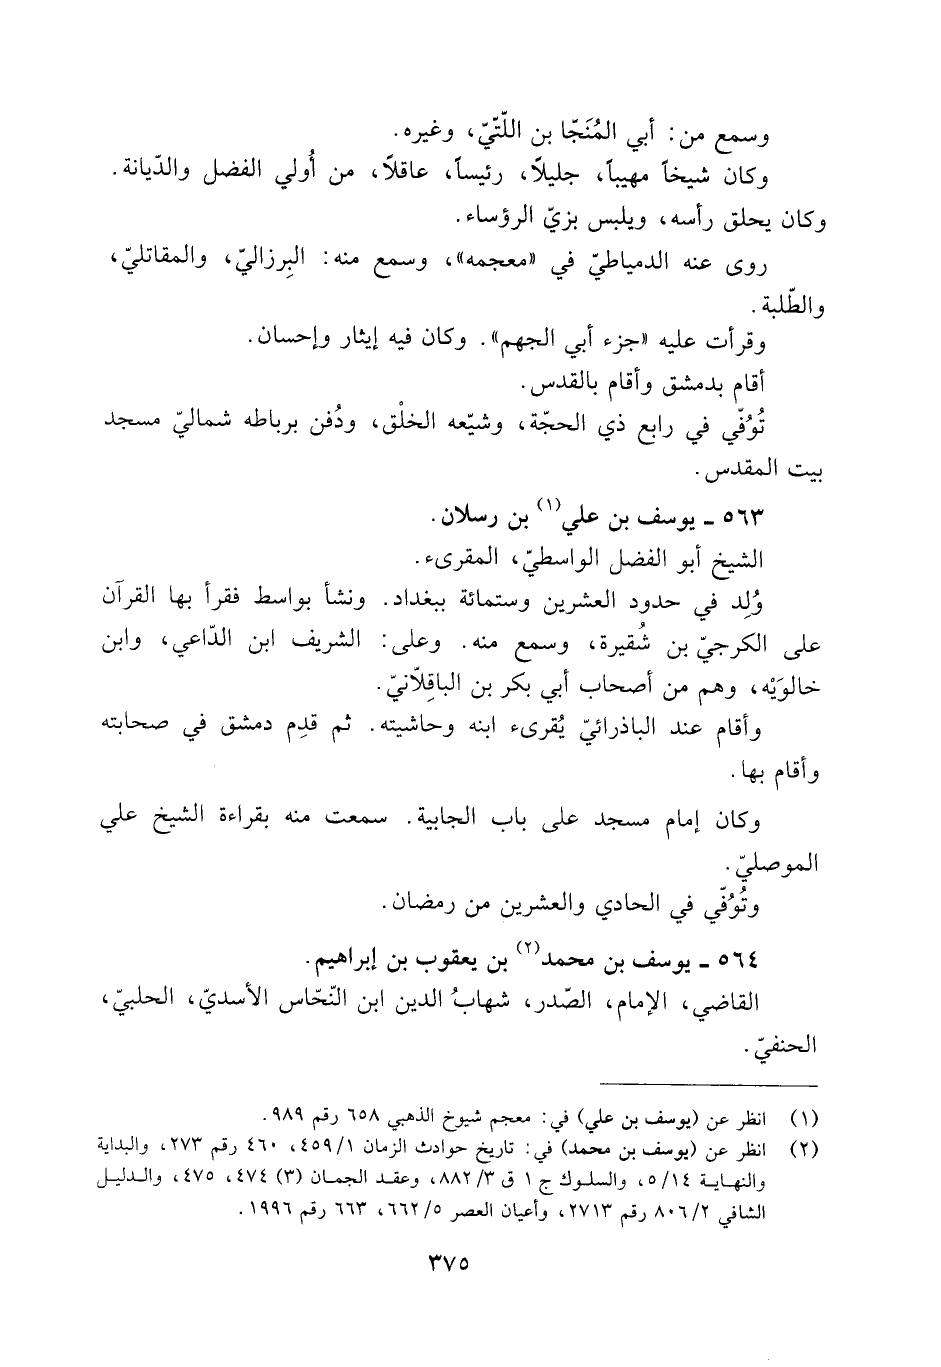 وسمع من: أبي المُنَجّا بن اللّتّيّ، وغيره.
وكان شيخاً مهيباً، جليلاً، رئيساً، عاقلاً، من أُولي الفضل والدّيانة.
وكان يحلق رأسه، ويلبس بزيّ الرؤساء.
روى عنه الدمياطيّ في «معجمه»، وسمع منه: البِرزاليّ، والمقاتليّ،
والطّلبة.
وقرأت عليه «جزء أبي الجهم». وكان فيه إيثار وإحسان.
أقام بدمشق وأقام بالقدس.
تُوُفّي في رابع ذي الحجّة، وشيّعه الخلْق، ودُفن برباطه شماليّ مسجد
بيت المقدس.
٥٦٣ ـ يوسف بن علي(١) بن رسلان.
الشيخ أبو الفضل الواسطيّ، المقرىء.
وُلِد في حدود العشرين وستمائة ببغداد. ونشأ بواسط فقرأ بها القرآن
على الكرجيّ بن شُقيرة، وسمع منه. وعلى: الشريف ابن الدّاعي، وابن
خالوَيْه، وهم من أصحاب أبي بكر بن الباقِلاّنيّ.
وأقام عند الباذرائيّ يُقرىء ابنه وحاشيته. ثم قدِم دمشق في صحابته
وأقام بها.
وكان إمام مسجد على باب الجابية. سمعت منه بقراءة الشيخ علي
الموصليّ.
وتُوُفّي في الحادي والعشرين من رمضان.
٥٦٤ ـ يوسف بن محمد(٢) بن يعقوب بن إبراهيم.
القاضي، الإمام، الصّدر، شهابُ الدين ابن النّحّاس الأسديّ، الحلبيّ،
الحنفيّ.
(١) انظر عن (يوسف بن علي) في: معجم شيوخ الذهبي ٦٥٨ رقم ٩٨٩.
(٢) انظر عن (يوسف بن محمد) في: تاريخ حوادث الزمان ٤٥٩/١، ٤٦٠ رقم ٢٧٣، والبداية
والنهاية ٥/١٤، والسلوك ج ١ ق ٨٨٢/٣، وعقد الجمان (٣) ٤٧٤، ٤٧٥، والدليل
الشافي ٨٠٦/٢ رقم ٢٧١٣، وأعيان العصر ٦٦٢/٥، ٦٦٣ رقم ١٩٩٦.
٣٧٥